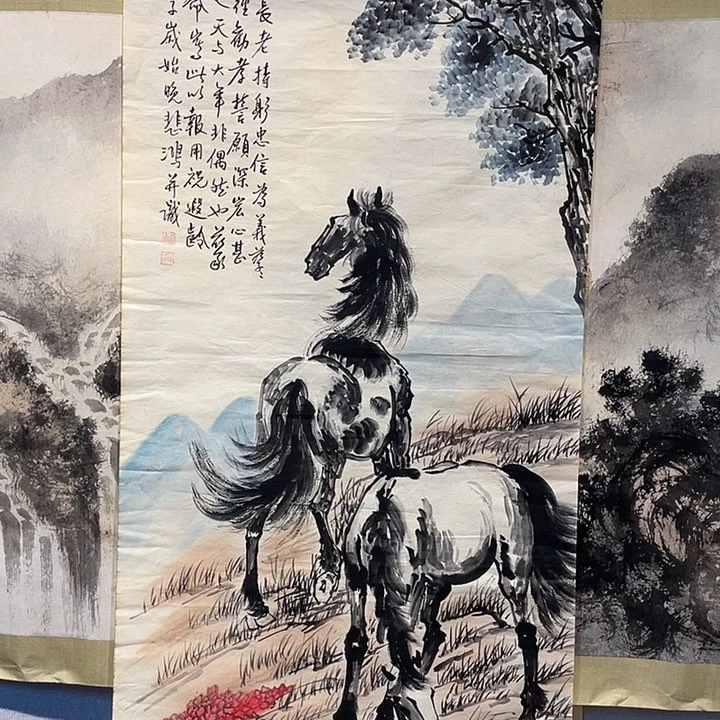 長老持躬忠信為義舉
經勸孝誓願深宏心甚
天与大年非偶然也
寫此以報用祝遐齡
子歲始晚悲鴻并識